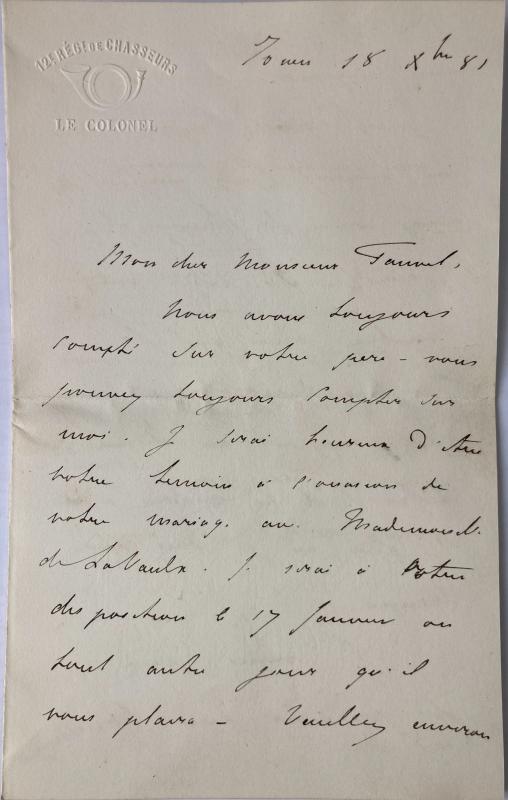 12e RÉGt DE CHASSEURS
LE COLONEL
18 Xbre 81
Mon cher Monsieur
Nous avons toujours
compté sur votre père – vous
pouvez toujours compter sur
moi. Je serai heureux d'être
votre témoin à l'occasion de
votre mariage avec Mademoiselle
de LaVaulx. Je serai à votre
disposition le 17 Janvier ou
tout autre jour qu'il
vous plaira – Veuillez